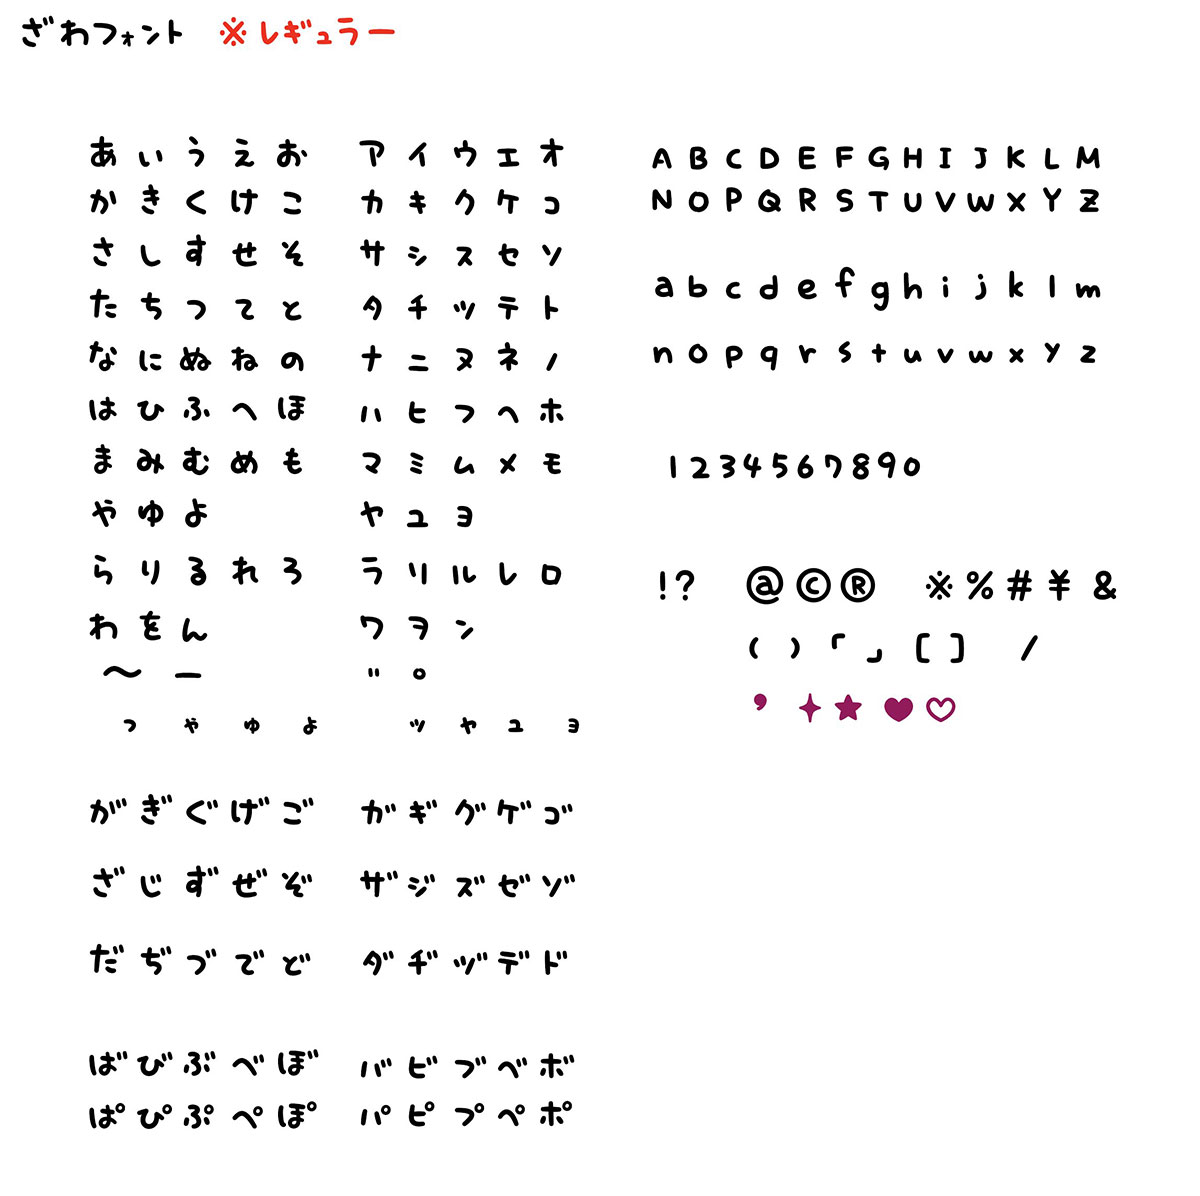 ざわフォント ※レギュラー
あいうえお アイウエオ
かきくけこ カキクケコ
さしすせそ サシスセソ
たちつてと タチツテト
なにぬねの ナニヌネノ
はひふへほ ハヒフヘホ
まみむめも マミムメモ
やゆよ ヤユヨ
らりるれろ ラリルレロ
わをん ワヲン
〜ー ゛゜
っゃゅょ ッャュョ
がぎぐげご ガギグゲゴ
ざじずぜぞ ザジズゼゾ
だぢづでど ダヂヅデド
ばびぶべぼ バビブベボ
ぱぴぷぺぽ パピプペポ
A B C D E F G H I J K L M
N O P Q R S T U V W X Y Z
a b c d e f g h i j k l m
n o p q r s t u v w x y z
1 2 3 4 5 6 7 8 9 0
!? @ © ® ※ % # ¥ &
( ) 「 」 [ ] /
, ✦ ★ ♥ ♡